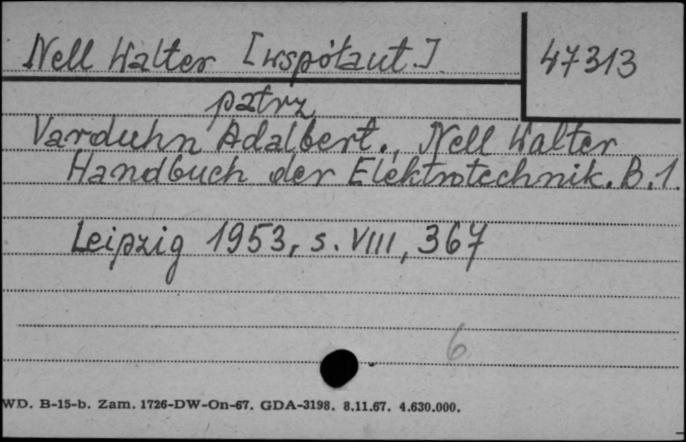 Nell Walter [współaut.]
47313
patrz
Varduhn Adalbert., Nell Walter
Handbuch der Elektrotechnik. B. 1.
Leipzig 1953, s. VIII, 367
6
WD. B-15-b. Zam. 1726-DW-On-67. GDA-3198. 8.11.67. 4.630.000.